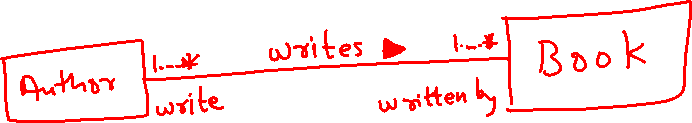 Author
1...*
write
writes
1...*
written by
Book